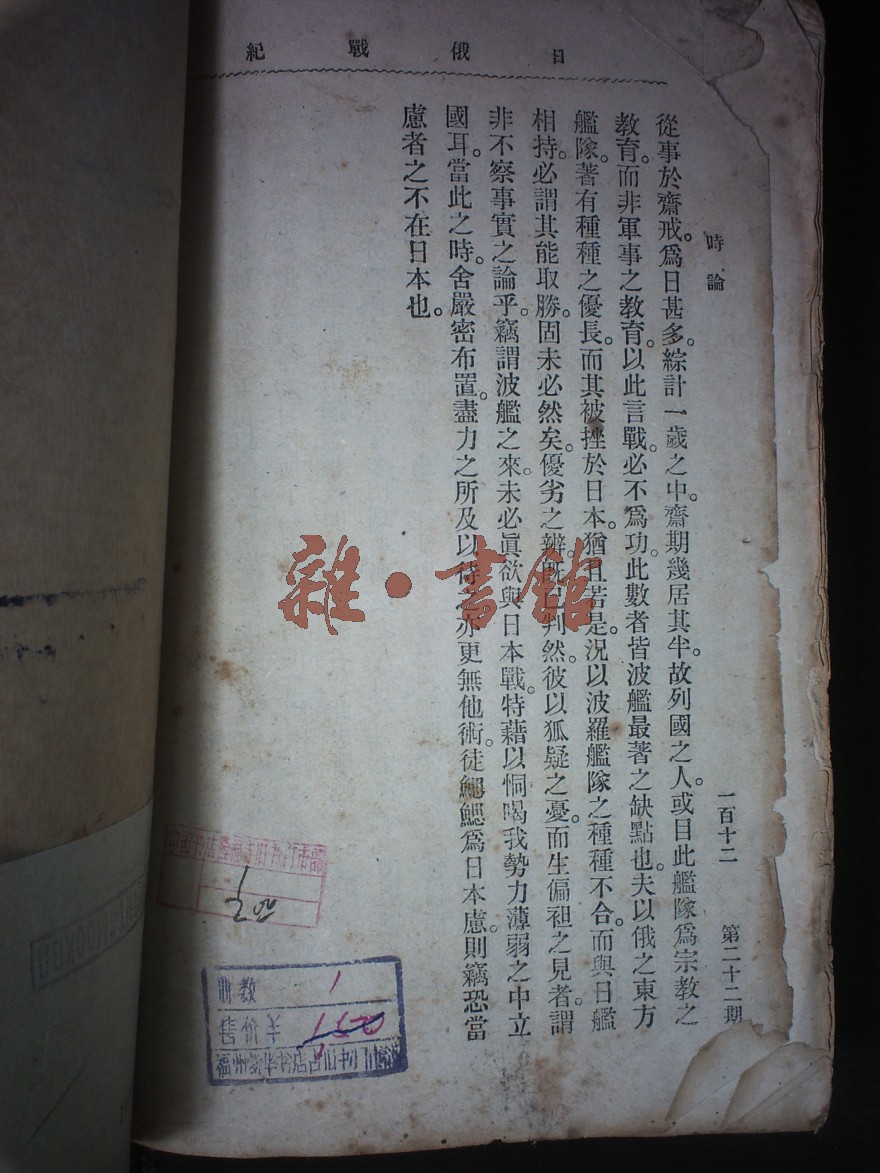 日俄戰紀
時論
一百十二
第二十二期
從事於齋戒。爲日甚多。綜計一歲之中。齋期幾居其半。故列國之人。或目此艦隊爲宗教之
教育。而非軍事之教育。以此言戰。必不爲功。此數者皆波艦最著之缺點也。夫以俄之東方
艦隊。著有種種之優長。而其被挫於日本。猶且若是。況以波羅艦隊之種種不合。而與日艦
相持。必謂其能取勝。固未必然矣。優劣之辨。旣已判然。彼以狐疑之憂。而生偏袒之見者。謂
非不察事實之論乎。竊謂波艦之來。未必眞欲與日本戰。特藉以恫喝我勢力薄弱之中立
國耳。當此之時。舍嚴密布置。盡力之所及以待之。亦更無他術。徒鰓鰓爲日本慮。則竊恐當
慮者之不在日本也。
雜·書館
2.00
冊數 1
售价